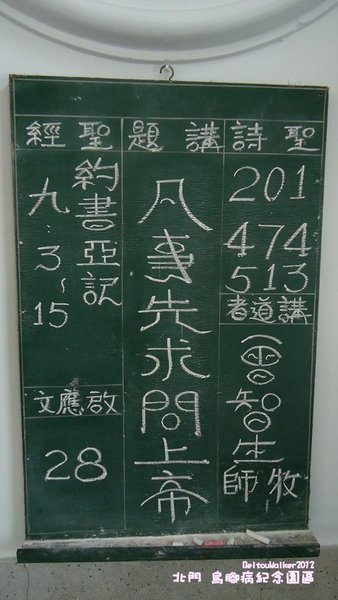 聖詩
201
474
513
講道者
智生
牧師
講題
凡事先求問上帝
聖經
約書亞記
九:3~15
啟應文
28
BeitouWalker2012
北門 烏腳病紀念園區